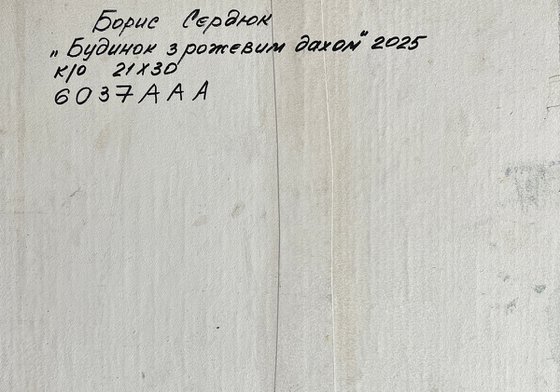 Борис Сердюк
„Будинок з рожевим дахом" 2025
к/о 21х30
6037ААА